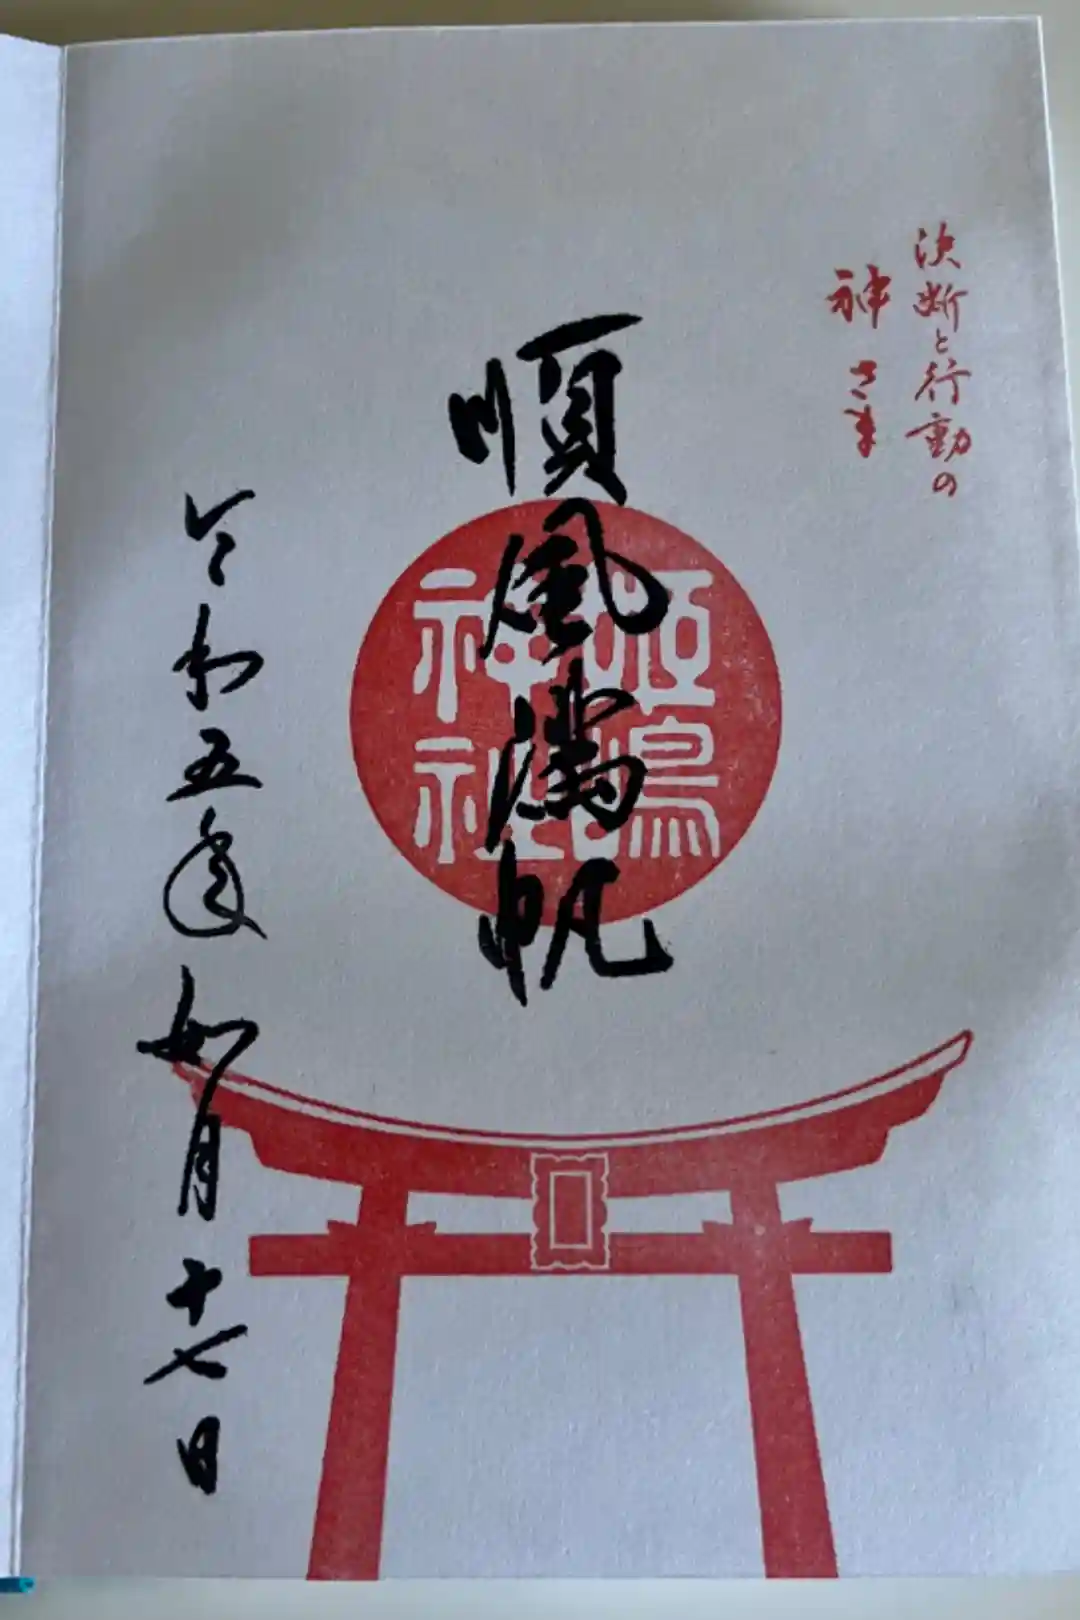 決断と行動の
神さま
順風満帆
姫嶋
神社
令和五年如月十七日